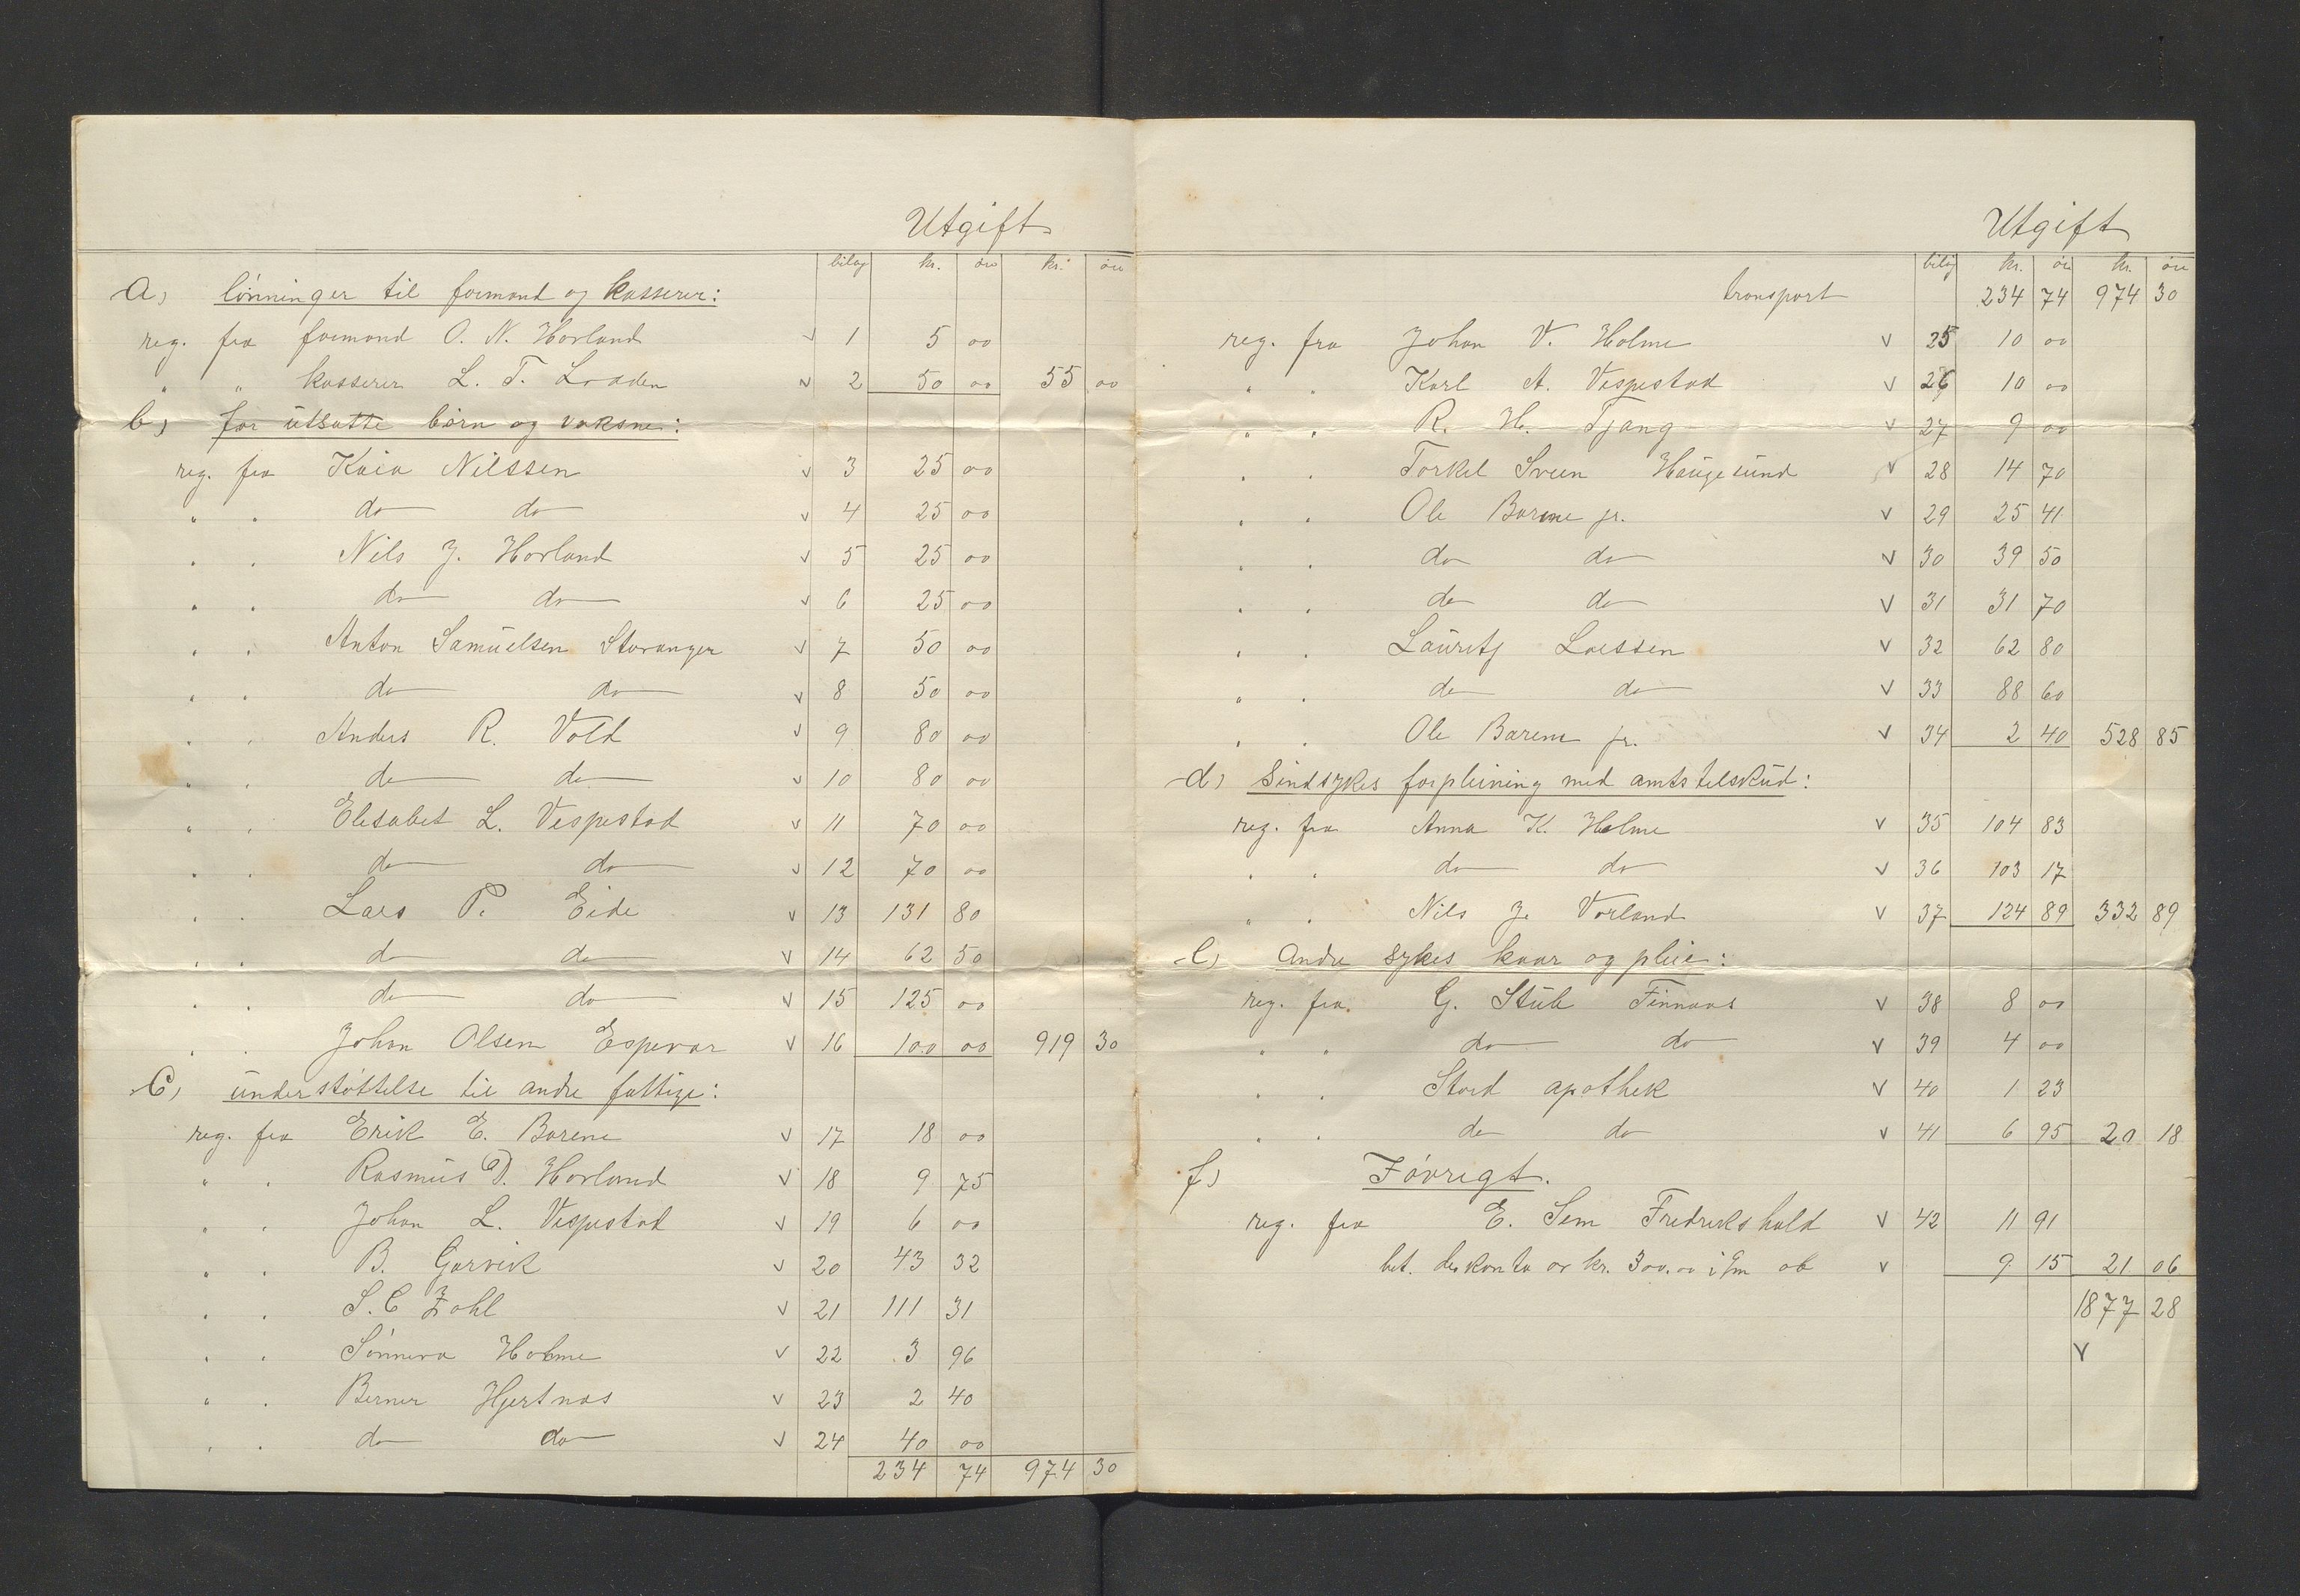 Utgift
bilag kr. øre kr. øre
a) lönninger til formand og kasserer:
reg. fra formand O. N. Horland v 1 5 00
" " kasserer L. T. Laaden v 2 50 00 55 00
b) for utsatte børn og voksne:
reg. fra Kaia Nilssen v 3 25 00
" " do do v 4 25 00
" " Nils J. Horland v 5 25 00
" " do do v 6 25 00
" " Anton Samuelsen Stavanger v 7 50 00
" " do do v 8 50 00
" " Anders R. Vold v 9 80 00
" " do do v 10 80 00
" " Elisabet L. Vespestad v 11 70 00
" " do do v 12 70 00
" " Lars P. Eide v 13 131 80
" " do do v 14 62 50
" " do do v 15 125 00
" " Johan Olsen Espevær v 16 100 00 919 30
C) understøttelse til andre fattige:
reg. fra Erik E. Barene v 17 18 00
" " Rasmus D. Horland v 18 9 75
" " Johan L. Vespestad v 19 6 00
" " B. Gorvik v 20 43 32
" " S. C. Zahl v 21 111 31
" " Sönneva Holme v 22 3 96
" " Berner Hjertnæs v 23 2 40
" " do do v 24 40 00
234 74 974 30
Utgift
bilag kr. øre kr. øre
transport 234 74 974 30
reg. fra Johan V. Holme v 25 10 00
" " Karl A. Vespestad v 26 10 00
" " R. H. Tjong v 27 9 00
" " Torkel Sveen Haugesund v 28 14 70
" " Ole Barene jr. v 29 25 41
" " do do v 30 39 50
" " do do v 31 31 70
" " Lauritz Larssen v 32 62 80
" " do do v 33 88 60
" " Ole Barene jr. v 34 2 40 528 85
d) Sindsykes forpleining med amtstilskud:
reg. fra Anna K. Holme v 35 104 83
" " do do v 36 103 17
" " Nils J. Vorland v 37 124 89 332 89
e) Andre sykes kuur og pleie:
reg. fra G. Stub Finnaas v 38 8 00
" " do do v 39 4 00
" " Stord apothek v 40 1 23
" " do do v 41 6 95 20 18
f) Iøvrigt.
reg. fra E. Sem Fredrikshald v 42 11 91
bet. diskonto av kr. 300.00 i v 9 15 21 06
1877 28
v